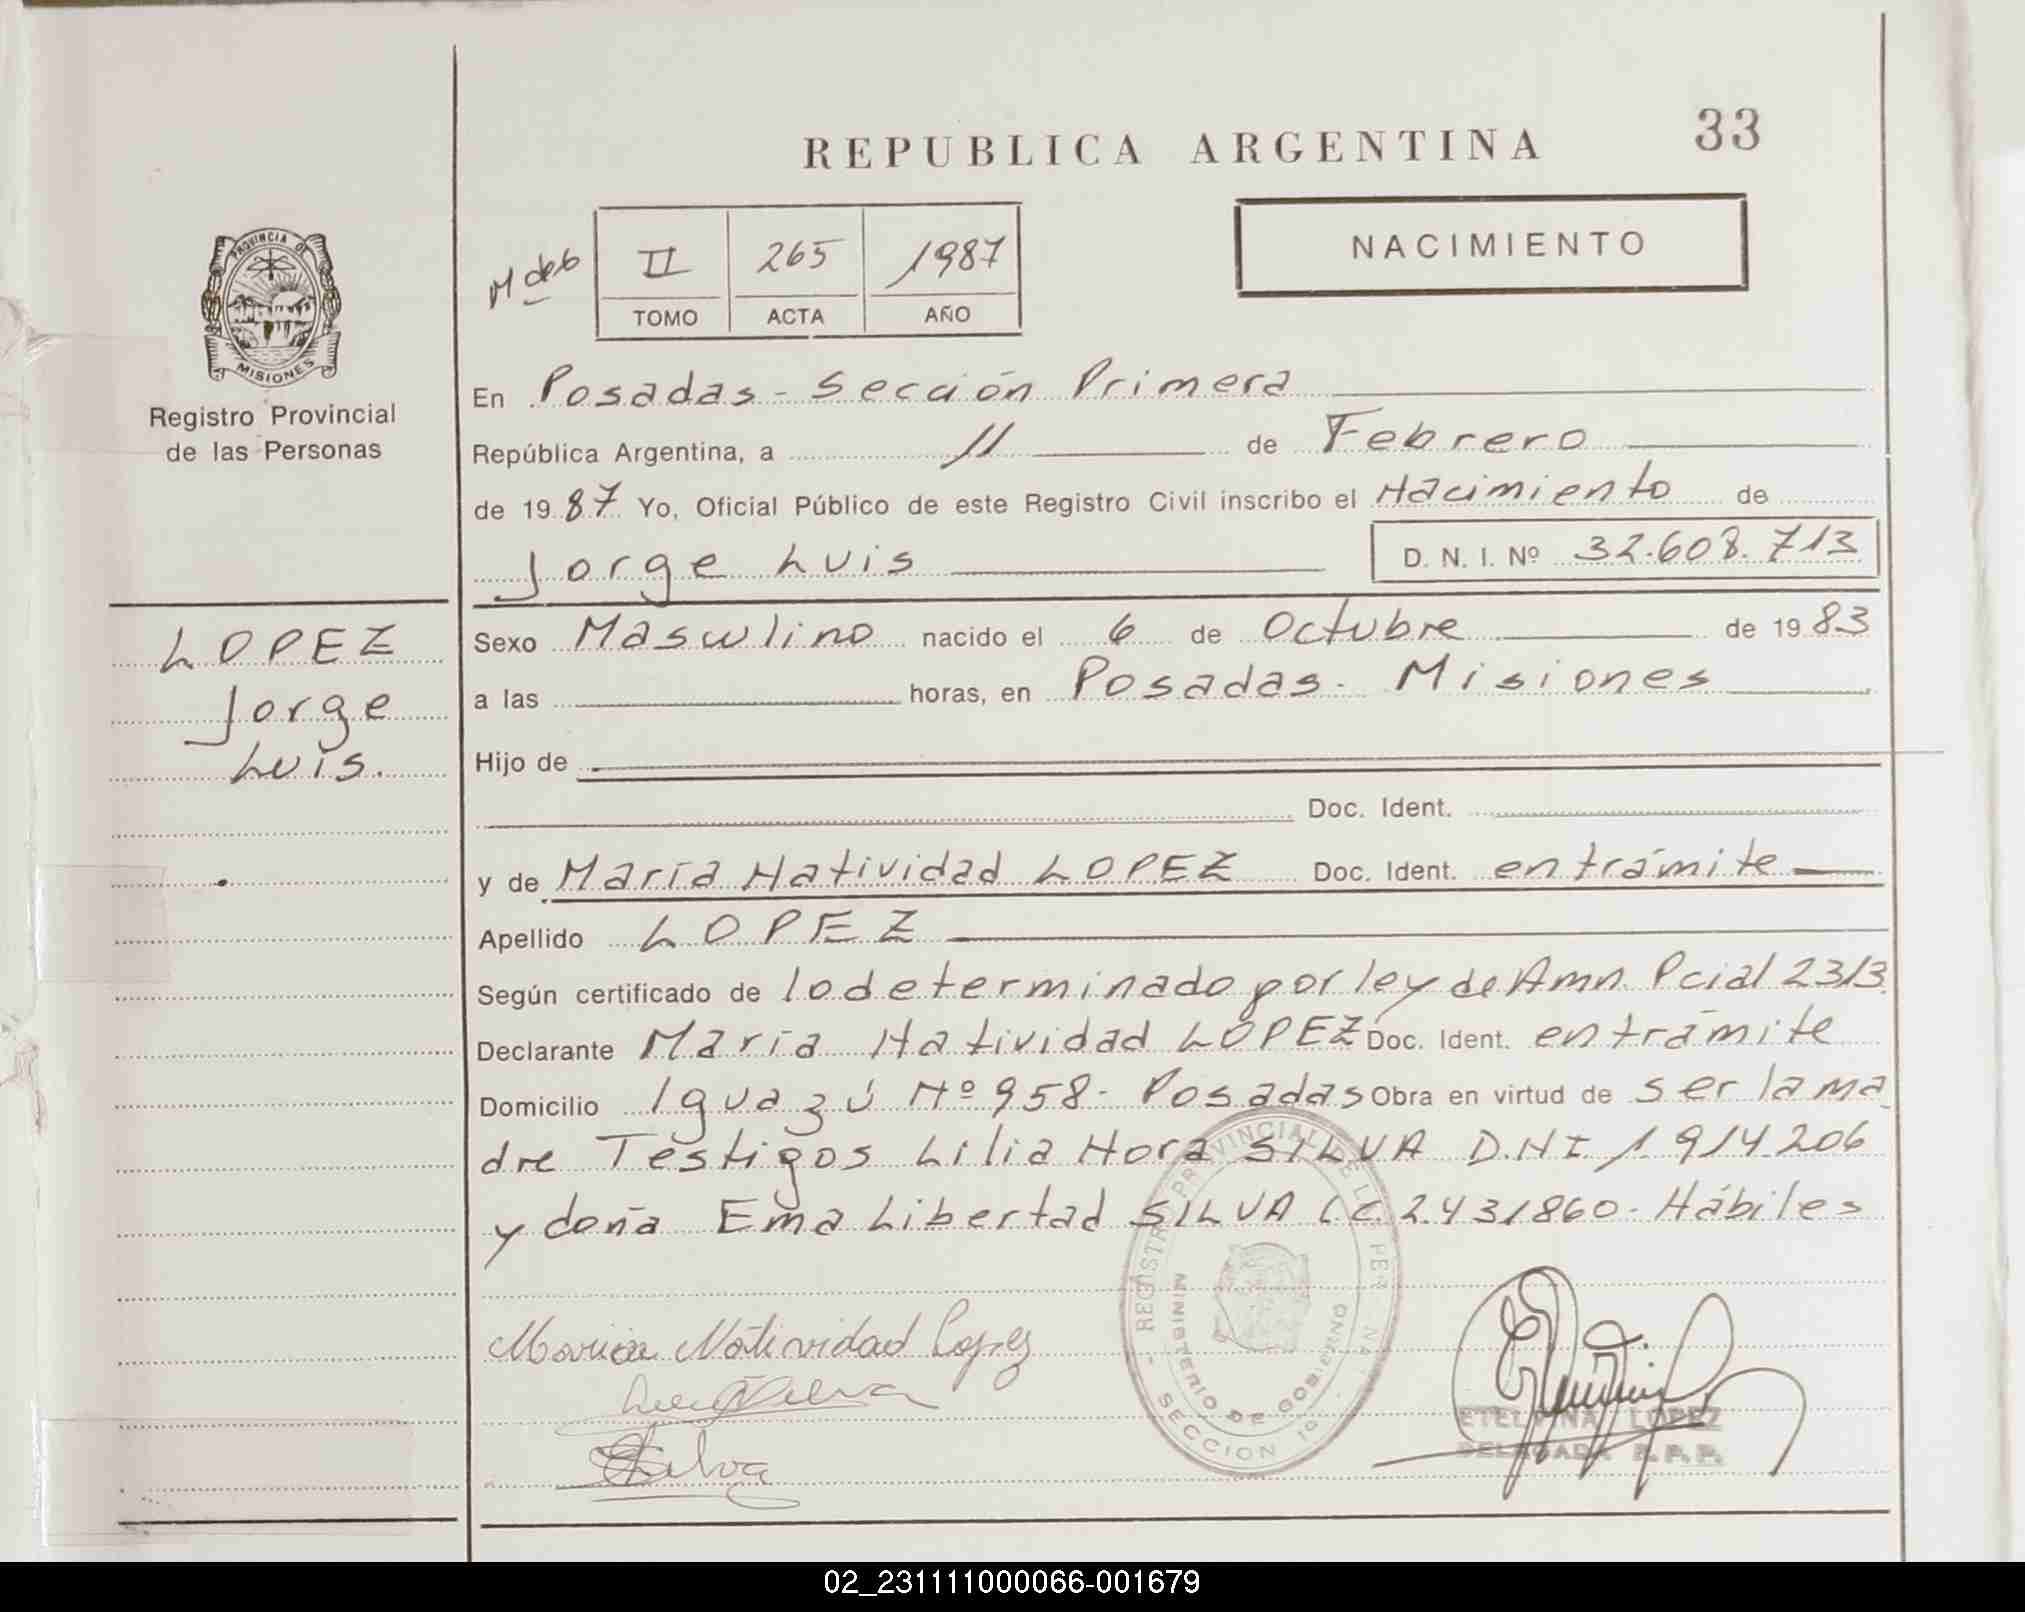 REPUBLICA ARGENTINA
33
NACIMIENTO
II 265 1987
TOMO ACTA AÑO
PROVINCIA DE
MISIONES
Registro Provincial
de las Personas
En Posadas - Sección Primera
República Argentina, a 11 de Febrero
de 1987 Yo, Oficial Público de este Registro Civil inscribo el Nacimiento de
Jorge Luis D. N. I. Nº 32.608.713
LOPEZ
Jorge
Luis.
Sexo Masculino nacido el 6 de Octubre de 1983
a las horas, en Posadas - Misiones
Hijo de
Doc. Ident.
y de María Natividad LOPEZ Doc. Ident. en trámite
Apellido LOPEZ
Según certificado de lo determinado por ley de Amn. Pcial 2313
Declarante María Natividad LOPEZ Doc. Ident. en trámite
Domicilio Iguazú Nº 958 - Posadas Obra en virtud de ser la ma
dre Testigos Lilia Nora SILVA D.N.I 1.914.206
y doña Ema Libertad SILVA L.C. 2.431860 - Hábiles
Maria Natividad Lopez
Silva
REGISTRO PROVINCIAL DE LAS PER
MINISTERIO DE GOBIERNO
SECCION 1º
ETELVINA LOPEZ
DELEGADA R.P.P.
02_231111000066-001679